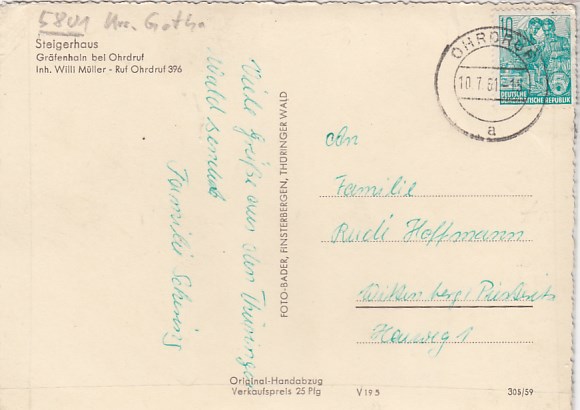 5801 Krs. Gotha
Steigerhaus
Gräfenhain bei Ohrdruf
Inh. Willi Müller - Ruf Ohrdruf 396
Viele Grüße aus den Thüringer
Wald sendet
Familie
FOTO-BADER, FINSTERBERGEN, THÜRINGER WALD
OHRDRUF
10.7.61
a
10
DEUTSCHE
DEMOKRATISCHE REPUBLIK
An
Familie
Rudi Hoffmann
Wittenberg/Piesteritz
Heuweg 1
Original-Handabzug
Verkaufspreis 25 Pfg
V 19 5
305/59